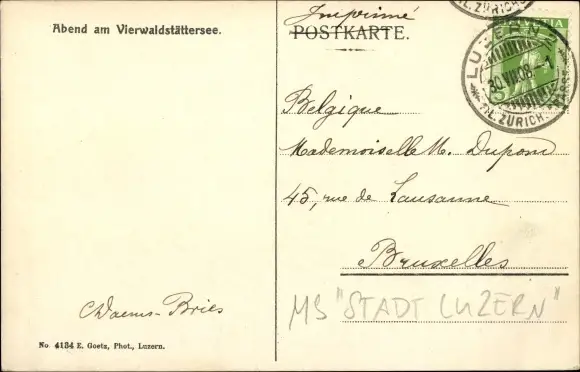 Abend am Vierwaldstättersee.
Imprimé
POSTKARTE.
HELVETIA
5
LUZERN 2
30.VII.08.-1
FIL. ZÜRICH.
Belgique
Mademoiselle M. Dupond
45, rue de Lausanne
Bruxelles
MS "STADT LUZERN"
No. 4134 E. Goetz, Phot., Luzern.